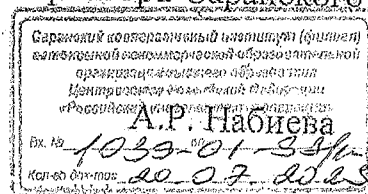 Саранский кооперативный институт (филиал)
автономной некоммерческой образовательной
организации высшего образования
Центросоюза Российской Федерации
«Российский университет кооперации»
А.Р. Набиева
Вх. № 1039-01-33/
Кол-во док-тов: 20.07 2023